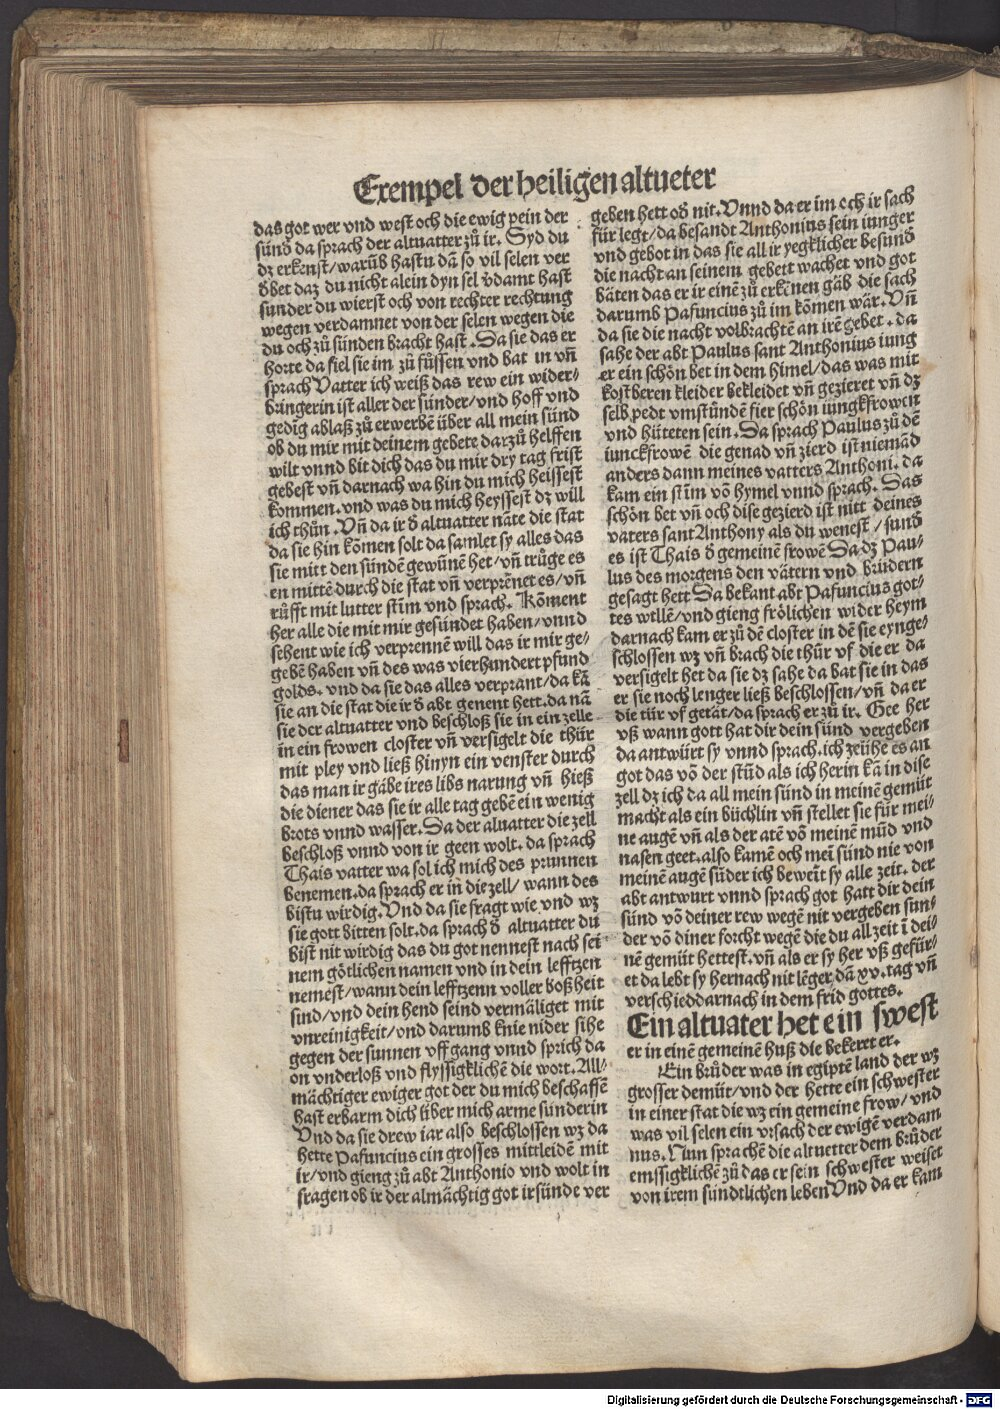 Exempel der heiligen altueter
das got wer vnd west och die ewig pein der
sünd̕ da sprach der altuatter zů ir. Syd du
dz erkenst/warūb hastu dā so vil selen ver
d̕bet daz du nicht alein dyn sel v̕damt hast
sunder du wierst och von rechter rechtung
wegen verdamnet von der selen wegen die
du och zů sünden bracht hast. Da sie das er
horte da fiel sie im zů füssen vnd bat in vn̄
sprach Vatter ich weiß das rew ein wider-
bringerin ist aller der sünder/vnd hoff vnd
gedig ablaß zů erwerbē über all mein sünd
ob du mir mit deinem gebete darzů helffen
wilt vnnd bit dich das du mir dry tag frist
gebest vn̄ darnach wa hin du mich heissest
kommen. vnd was du mich heyssest dz will
ich thůn. Vn̄ da ir d̕ altuatter nāte die stat
da sie hin kōmen solt da samlet sy alles das
sie mitt den sündē gewūnē het/vn̄ trůge es
en mittē durch die stat vn̄ verprēnet es/vn̄
růfft mit lutter stīm vnd sprach. Kōment
her alle die mit mir gesündet haben/vnnd
sehent wie ich verprennē will das ir mir ge-
gebē haben vn̄ des was vierhundert pfund
golds. vnd da sie das alles verprant/da kā
sie an die stat die ir d̕ abt genent hett. da nā
sie der altuatter vnd beschloß sie in ein zelle
in ein frowen closter vn̄ versigelt die thür
mit pley vnd ließ hinyn ein venster durch
das man ir gäbe ires libs narung vn̄ hieß
die diener das sie ir alle tag gebē ein wenig
brots vnnd wasser. Da der aluatter die zell
beschloß vnnd von ir geen wolt. da sprach
Thais vatter wa sol ich mich des prunnen
benemen. da sprach er in die zell/ wann des
bistu wirdig. Vnd da sie fragt wie vnd wz
sie gott bitten solt. da sprach d̕ altuatter du
bist nit wirdig das du got nennest nach sei
nem götlichen namen vnd in dein lefftzen
nemest/wann dein lefftzenn voller boßheit
sind/vnd dein hend seind vermäliget mit
vnreinigkeit/vnd darumb knie nider sihe
gegen der sunnen vff gang vnnd sprich da
on vnderloß vnd flyssigklichē die wort. All-
mächtiger ewiger got der du mich beschaffē
hast erbarm dich über mich arme sünderin
Vnd da sie drew iar also beschlossen wz da
hette Pafuncius ein grosses mittleidē mit
ir/vnd gieng zů abt Anthonio vnd wolt in
fragen ob ir der almächtig got ir sünde ver
geben hett od̕ nit. Vnnd da er im och ir sach
für legt/da besandt Anthonius sein iunger
vnd gebot in das sie all ir yegklicher besund̕
die nacht an seinem gebett wachet vnd got
bäten das er ir einē zů erkēnen gäb die sach
darumb Pafuncius zů im kōmen wär. Vn̄
da sie die nacht volbrachtē an irē gebet. da
sahe der abt Paulus sant Anthonius iung
er ein schön bet in dem himel/das was mit
kostberen kleider bekleidet vn̄ gezieret vn̄ dz
selb pedt vmstūndē fier schön iungkfrowen
vnd hüteten sein. Da sprach Paulus zů dē
iunckfrowē die genad vn̄ zierd ist niemād
anders dann meines vatters Anthoni. da
kam ein stīm vō hymel vnnd sprach. Das
schön bet vn̄ och dise gezierd ist nitt deines
vaters sant Anthony als du wenest/sund̕
es ist Thais d̕ gemeinē frowē Da dz Pau-
lus des morgens den vätern vnd brüdern
gesagt hett Da bekant abt Pafuncius got-
tes willē/vnd gieng frölichen wider heym
darnach kam er zů dē closter in dē sie eynge-
schlossen wz vn̄ brach die thür vf die er da
versigelt het da sie dz sahe da bat sie in das
er sie noch lenger ließ beschlossen/vn̄ da er
die tür vf getät/da sprach er zů ir. Gee her
vß wann gott hat dir dein sünd vergeben
da antwürt sy vnnd sprach. ich zeühe es an
got das vō der stūd als ich herin kā in dise
zell dz ich da all mein sünd in meinē gemüt
macht als ein büchlin vn̄ stellet sie für mei-
ne augē vn̄ als der atē vō meinē mūd vnd
nasen geet. also kamē och mei sünd nie von
meinē augē sūder ich bewent sy alle zeit. der
abt antwurt vnnd sprach got hatt dir dein
sünd vō deiner rew wegē nit vergeben sun-
der vō diner forcht wegē die du all zeit ī dei-
nē gemüt hettest. vn̄ als er sy her vß gefür-
et da lebt sy hernach nit lēger dā xv. tag vn̄
verschied darnach in dem frid gottes.
Ein altuater het ein swest
er in einē gemeinē huß die bekeret er.
Ein brůder was in egiptē land der wz
grosser demüt/vnd der hette ein schwester
in einer stat die wz ein gemeine frow/vnd
was vil selen ein vrsach der ewigē verdam
nus. Nun sprachē die altuetter dem brůder
emssigklichē zů das er sein schwester weiset
von irem sündtlichen leben Vnd da er kam
Digitalisierung gefördert durch die Deutsche Forschungsgemeinschaft - DFG